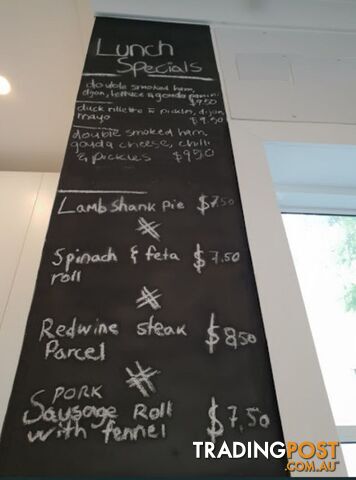 Lunch
Specials
double smoked ham,
dijon, lettuce & gouda panini
$9.50
duck rillette & pickles, dijon
mayo $9.50
double smoked ham,
gouda cheese, chilli
& pickles $9.50
Lamb Shank Pie $7.50
Spinach & feta $7.50
roll
Redwine steak $8.50
Parcel
PORK
Sausage Roll $7.50
with fennel
TRADINGPOST
.COM.AU